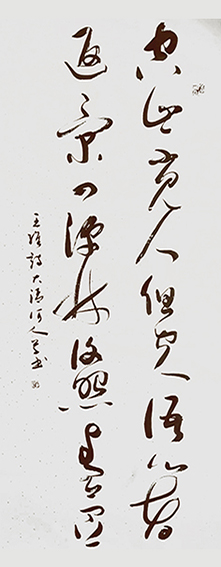 空山不見人但聞人語響
返景入深林復照青苔上
王維詩大清河人書